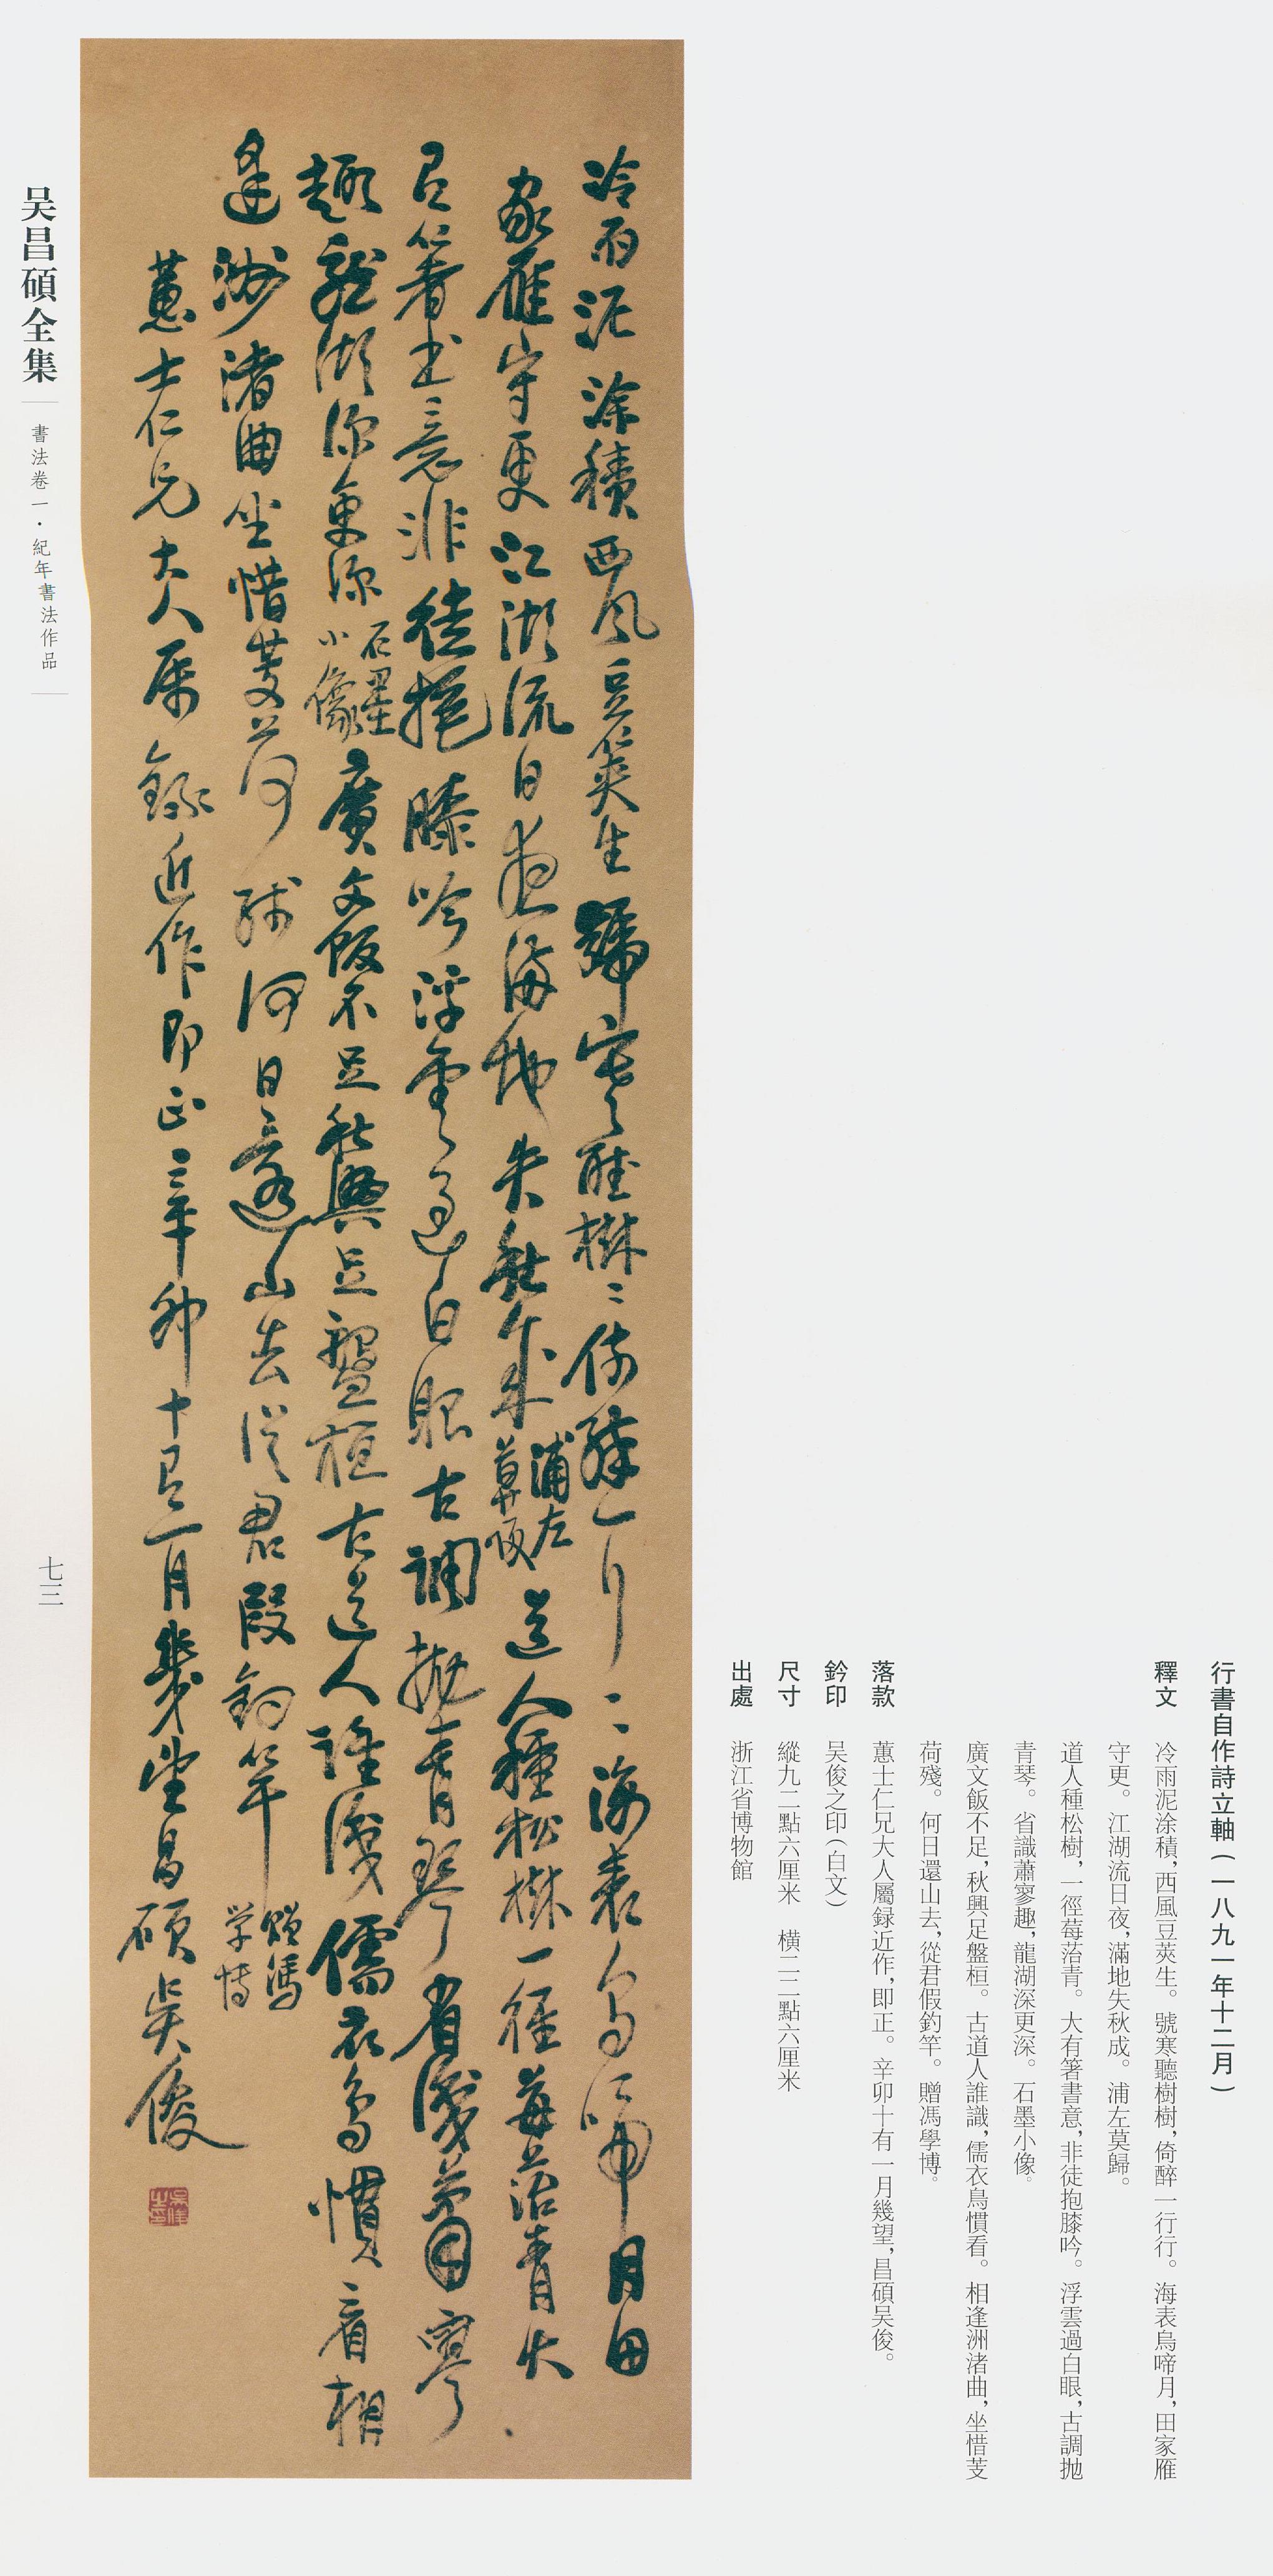 行書自作詩立軸（一八九一年十二月）
釋文　冷雨泥涂積，西風豆莢生。號寒聽樹樹，倚醉一行行。海表烏啼月，田家雁
守更。江湖流日夜，滿地失秋成。浦左莫歸。
道人種松樹，一徑莓苔青。大有箸書意，非徒抱膝吟。浮雲過白眼，古調抛
青琴。省識蕭寥趣，龍湖深更深。石墨小像。
廣文飯不足，秋興足盤桓。古道人誰識，儒衣鳥慣看。相逢洲渚曲，坐惜芰
荷殘。何日還山去，從君假釣竿。贈馮學博。
落款　蕙士仁兄大人屬録近作，即正。辛卯十有一月幾望，昌碩吴俊。
鈐印　吴俊之印（白文）
尺寸　縱九二點六厘米　橫二二點六厘米
出處　浙江省博物館
冷雨泥涂積西風豆莢生號寒聽樹〻倚醉一行〻海表烏啼月田
家雁守更江湖流日夜滿地失秋成浦左莫歸道人種松樹一徑莓苔青大
有箸書意非徒抱膝吟浮雲過白眼古調抛青琴省識蕭寥
趣龍湖深更深石墨小像廣文飯不足秋興足盤桓古道人誰識儒衣鳥慣看相
逢洲渚曲坐惜芰荷殘何日還山去從君假釣竿贈馮学博
蕙士仁兄大人屬録近作即正辛卯十有一月幾望昌碩吴俊
吴俊之印
吴昌碩全集
書法卷一·紀年書法作品
七三